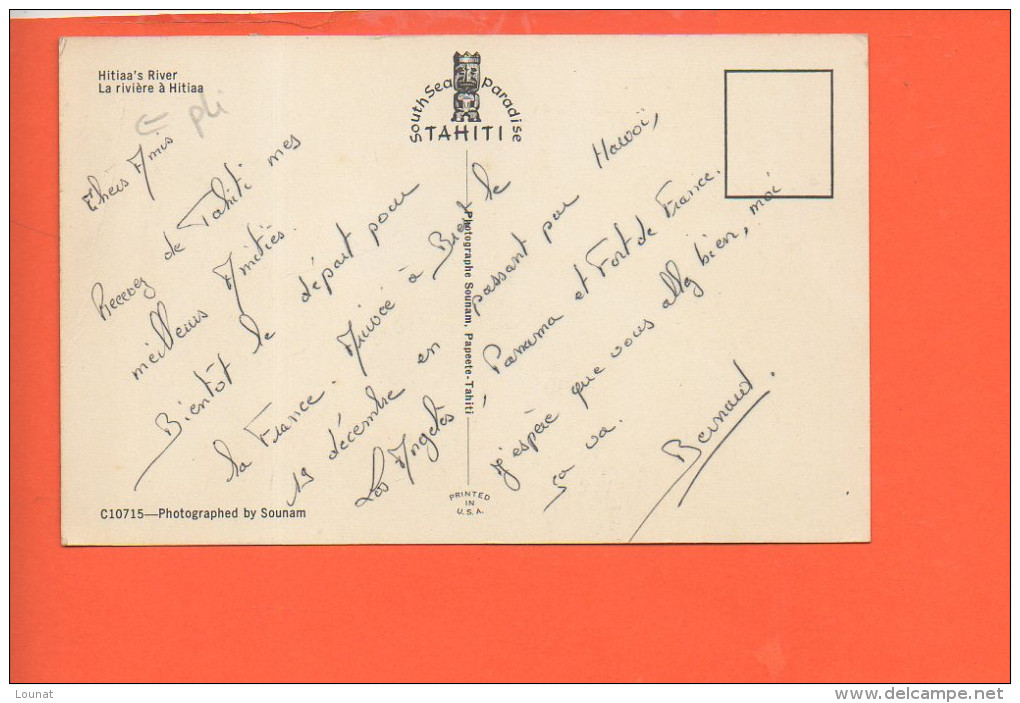 Hitiaa's River
La rivière à Hitiaa
pli
South Sea Paradise
TAHITI
Chers Amis
Recevez de Tahiti mes
meilleurs Amitiés.
Bientôt le départ pour
la France. Arrivée à Brest le
19 décembre en passant par Hawoï,
Los Angelès, Panama et Fort de France.
j'espère que vous allez bien, moi
sa va.
Bernard.
Photographe Sounam, Papeete-Tahiti
PRINTED
IN
U.S.A.
C10715—Photographed by Sounam
Lounat
www.delcampe.net